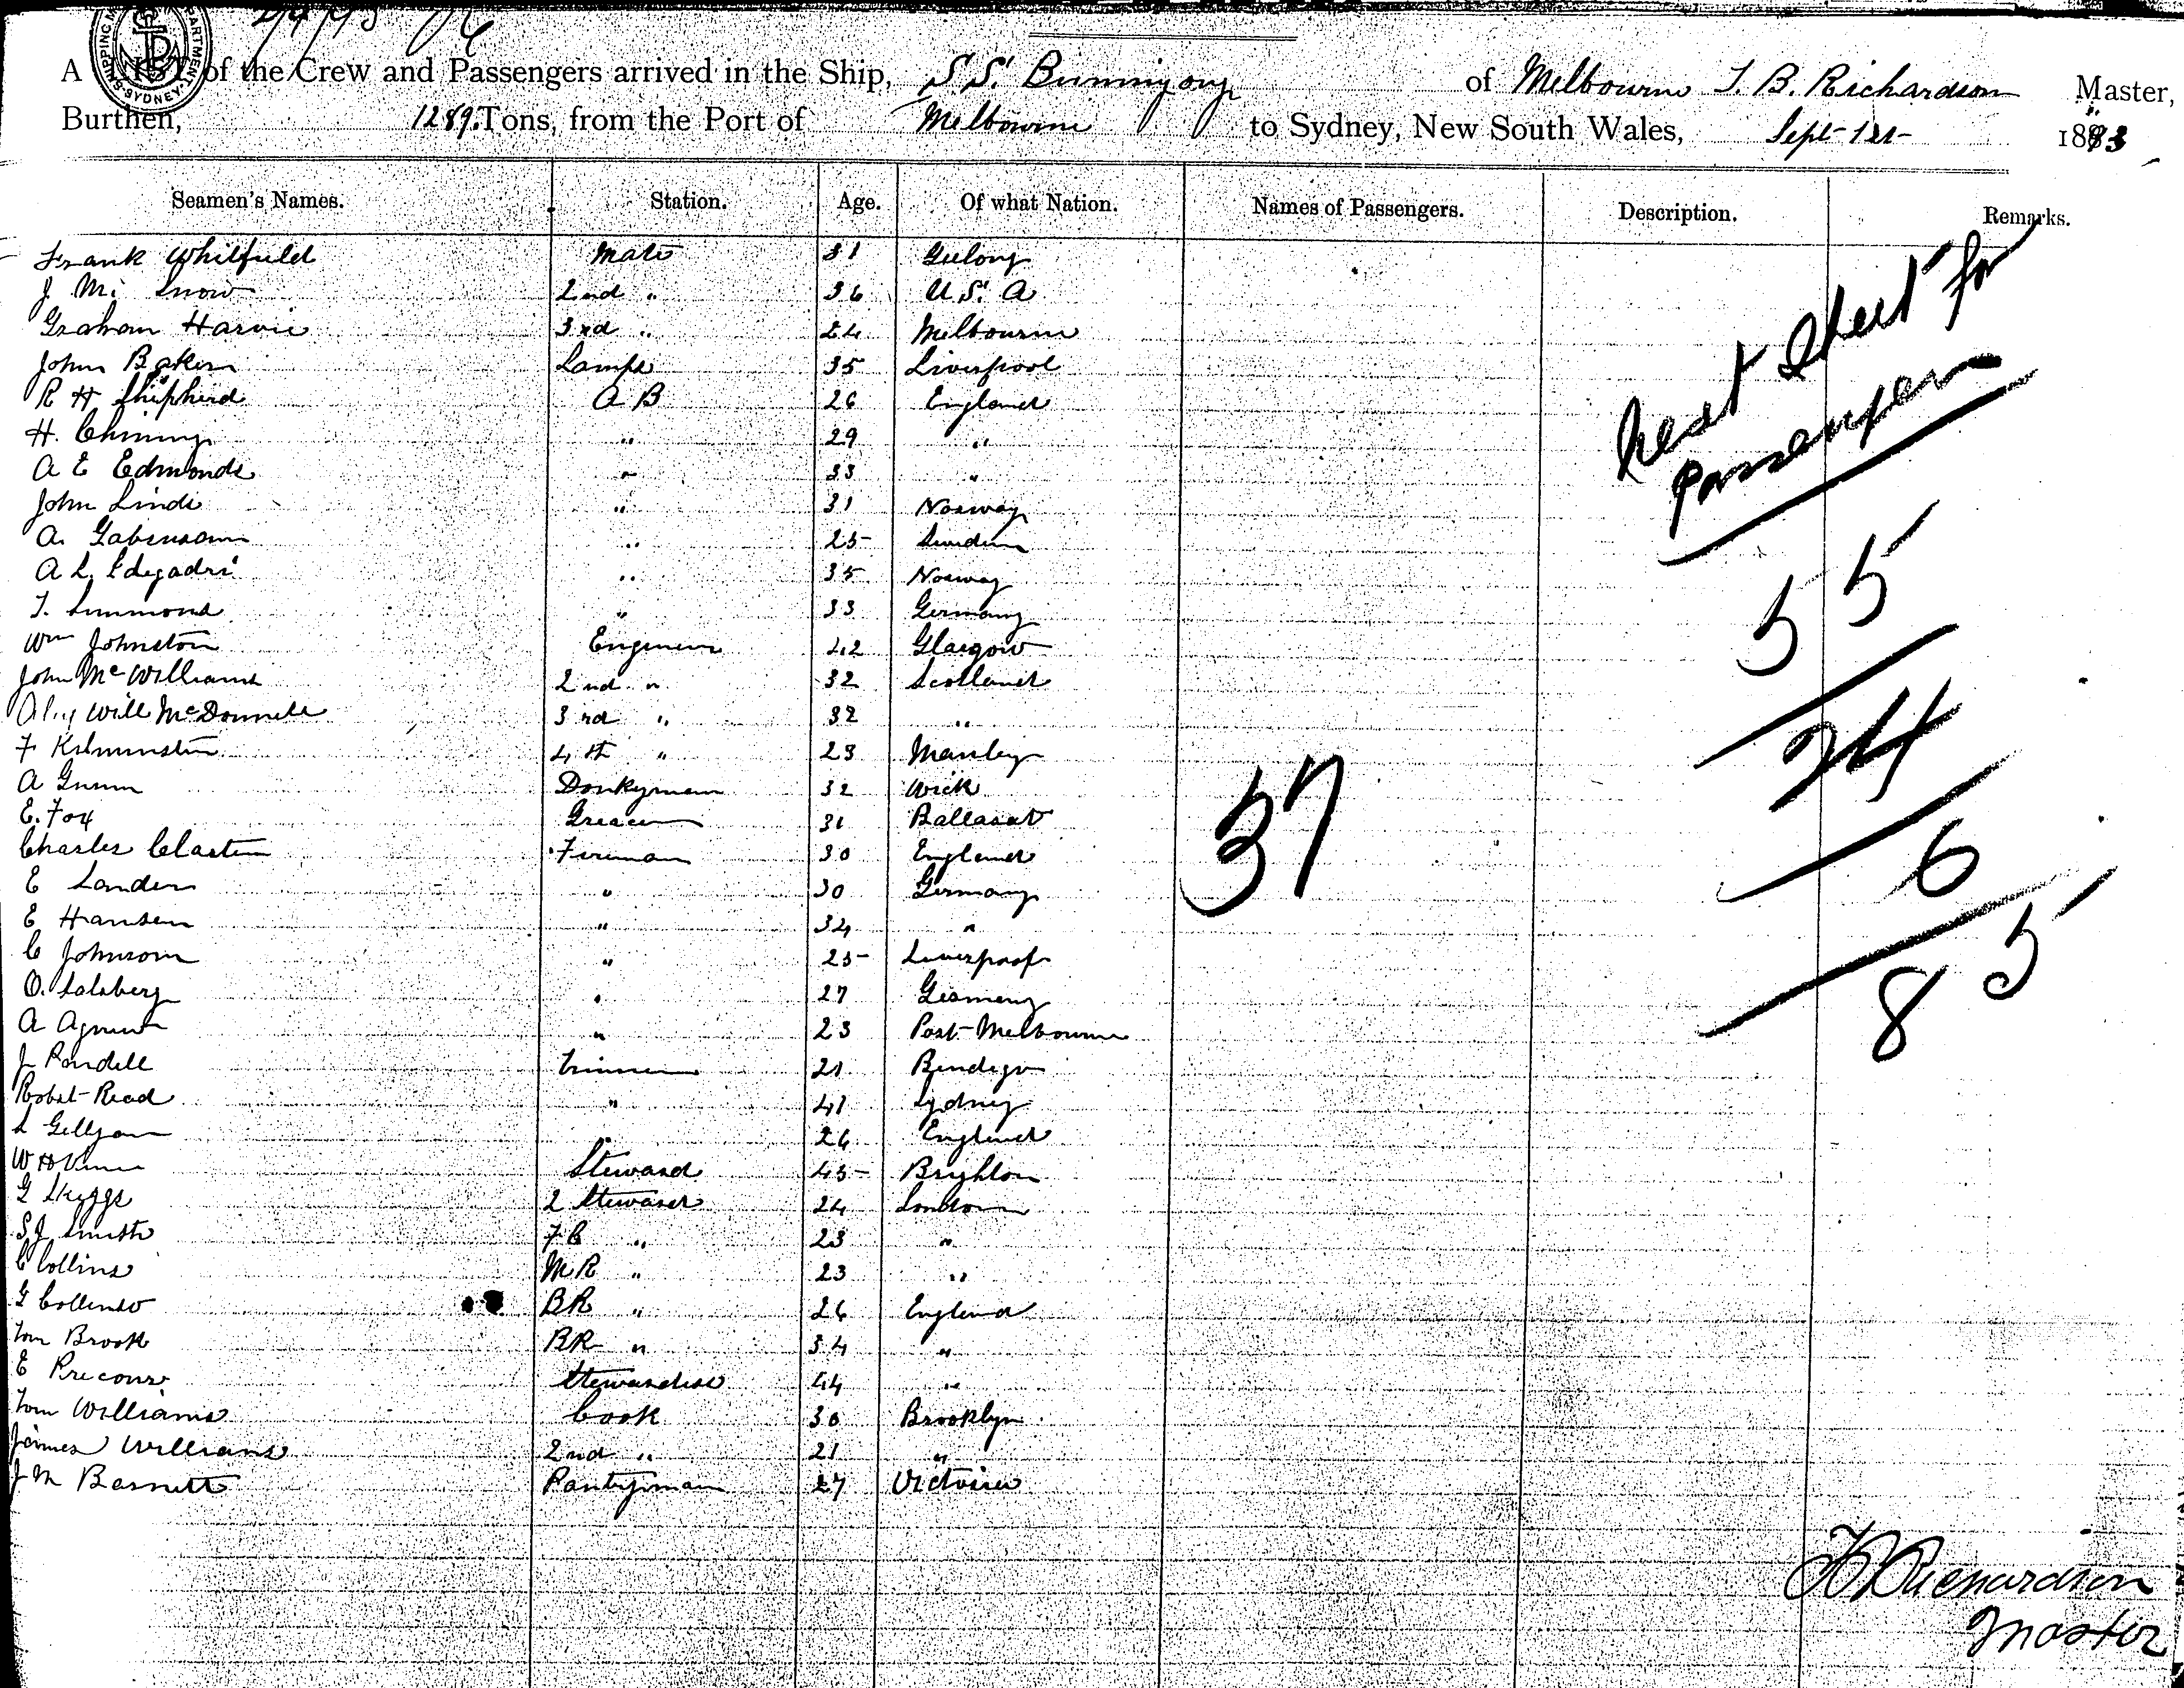 A LIST of the Crew and Passengers arrived in the Ship, S.S. Buninyong of Melbourne T. B. Richardson Master,
Burthen, 1289 Tons, from the Port of Melbourne to Sydney, New South Wales, Sept 1st 1893
Seamen's Names. Station. Age. Of what Nation. Names of Passengers. Description. Remarks.
Frank Whitfield Mate 31 Geelong
J M. Snow 2nd " 36 U.S. A
Graham Harvie 3rd " 24 Melbourne
John Baker Lamps 35 Liverpool
R H Shepherd A B 26 England
H. " 29 "
A E Edmonds " 33 "
John Linde " 31 Norway
A. " 25 Sweden
A L " 35 Norway
T. Simmons " 33 Germany
Wm Johnston Engineer 42 Glasgow
John McWilliams 2nd " 32 Scotland
Will McDonnell 3rd " 32 "
F 4th " 23 Manley
A Gunn Donkyman 32 Wick
E. Fox Greaser 31 Ballarat
Charles Fireman 30 England
E Sanders " 30 Germany
E Hansen " 34 "
C Johnson " 25 Liverpool
O. Salsberg " 27 Germany
A Agnew " 23 Port Melbourne
J Pandell Trimmer 21 Bendigo
Robet Read " 41 Sydney
" 26 England
W H Steward 45 Brighton
G Skeggs 2 Steward 24 London
S J Smith F C " 23 "
C Collins M R " 23 "
G BR " 26 England
Tom Brook BR " 34 "
E Stewardess 44 "
Tom Williams Cook 30 Brooklyn
James Williams 2nd " 21 "
J M Barnett Pantryman 27 Victoria
37
Next Sheet for
Passengers
55
24
6
85
T B Richardson
Master